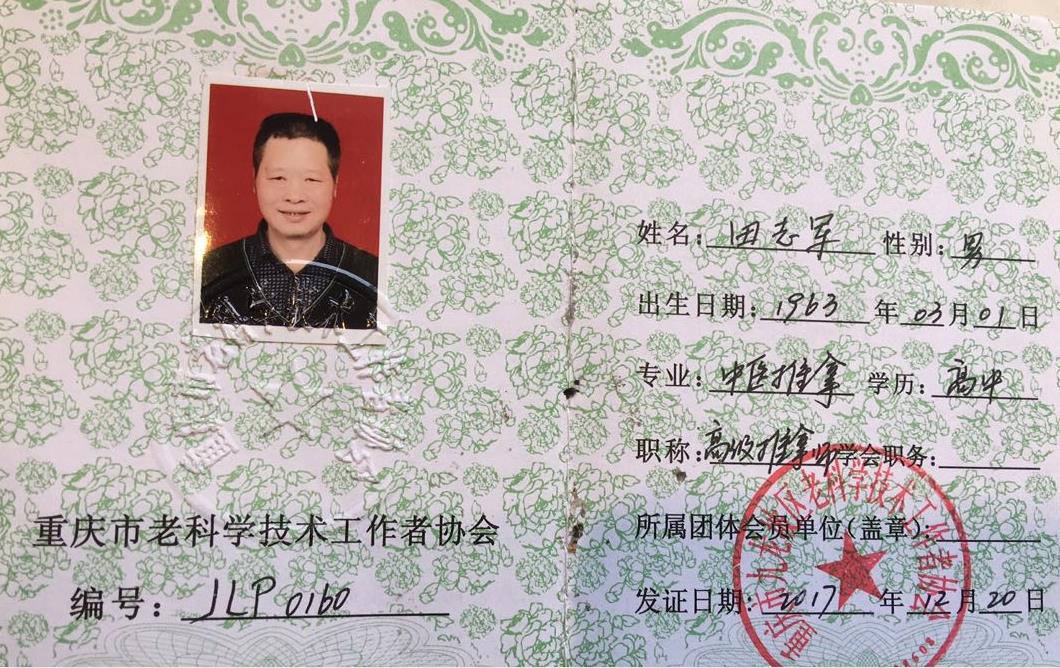 重庆市老科学技术工作者协会
编号：JLP0160
姓名：田志军 性别：男
出生日期：1963年03月01日
专业：中医推拿 学历：高中
职称：高级推拿师 学会职务：
所属团体会员单位(盖章)：
发证日期：2017年12月20日
重庆市九龙坡区老科学技术工作者协会